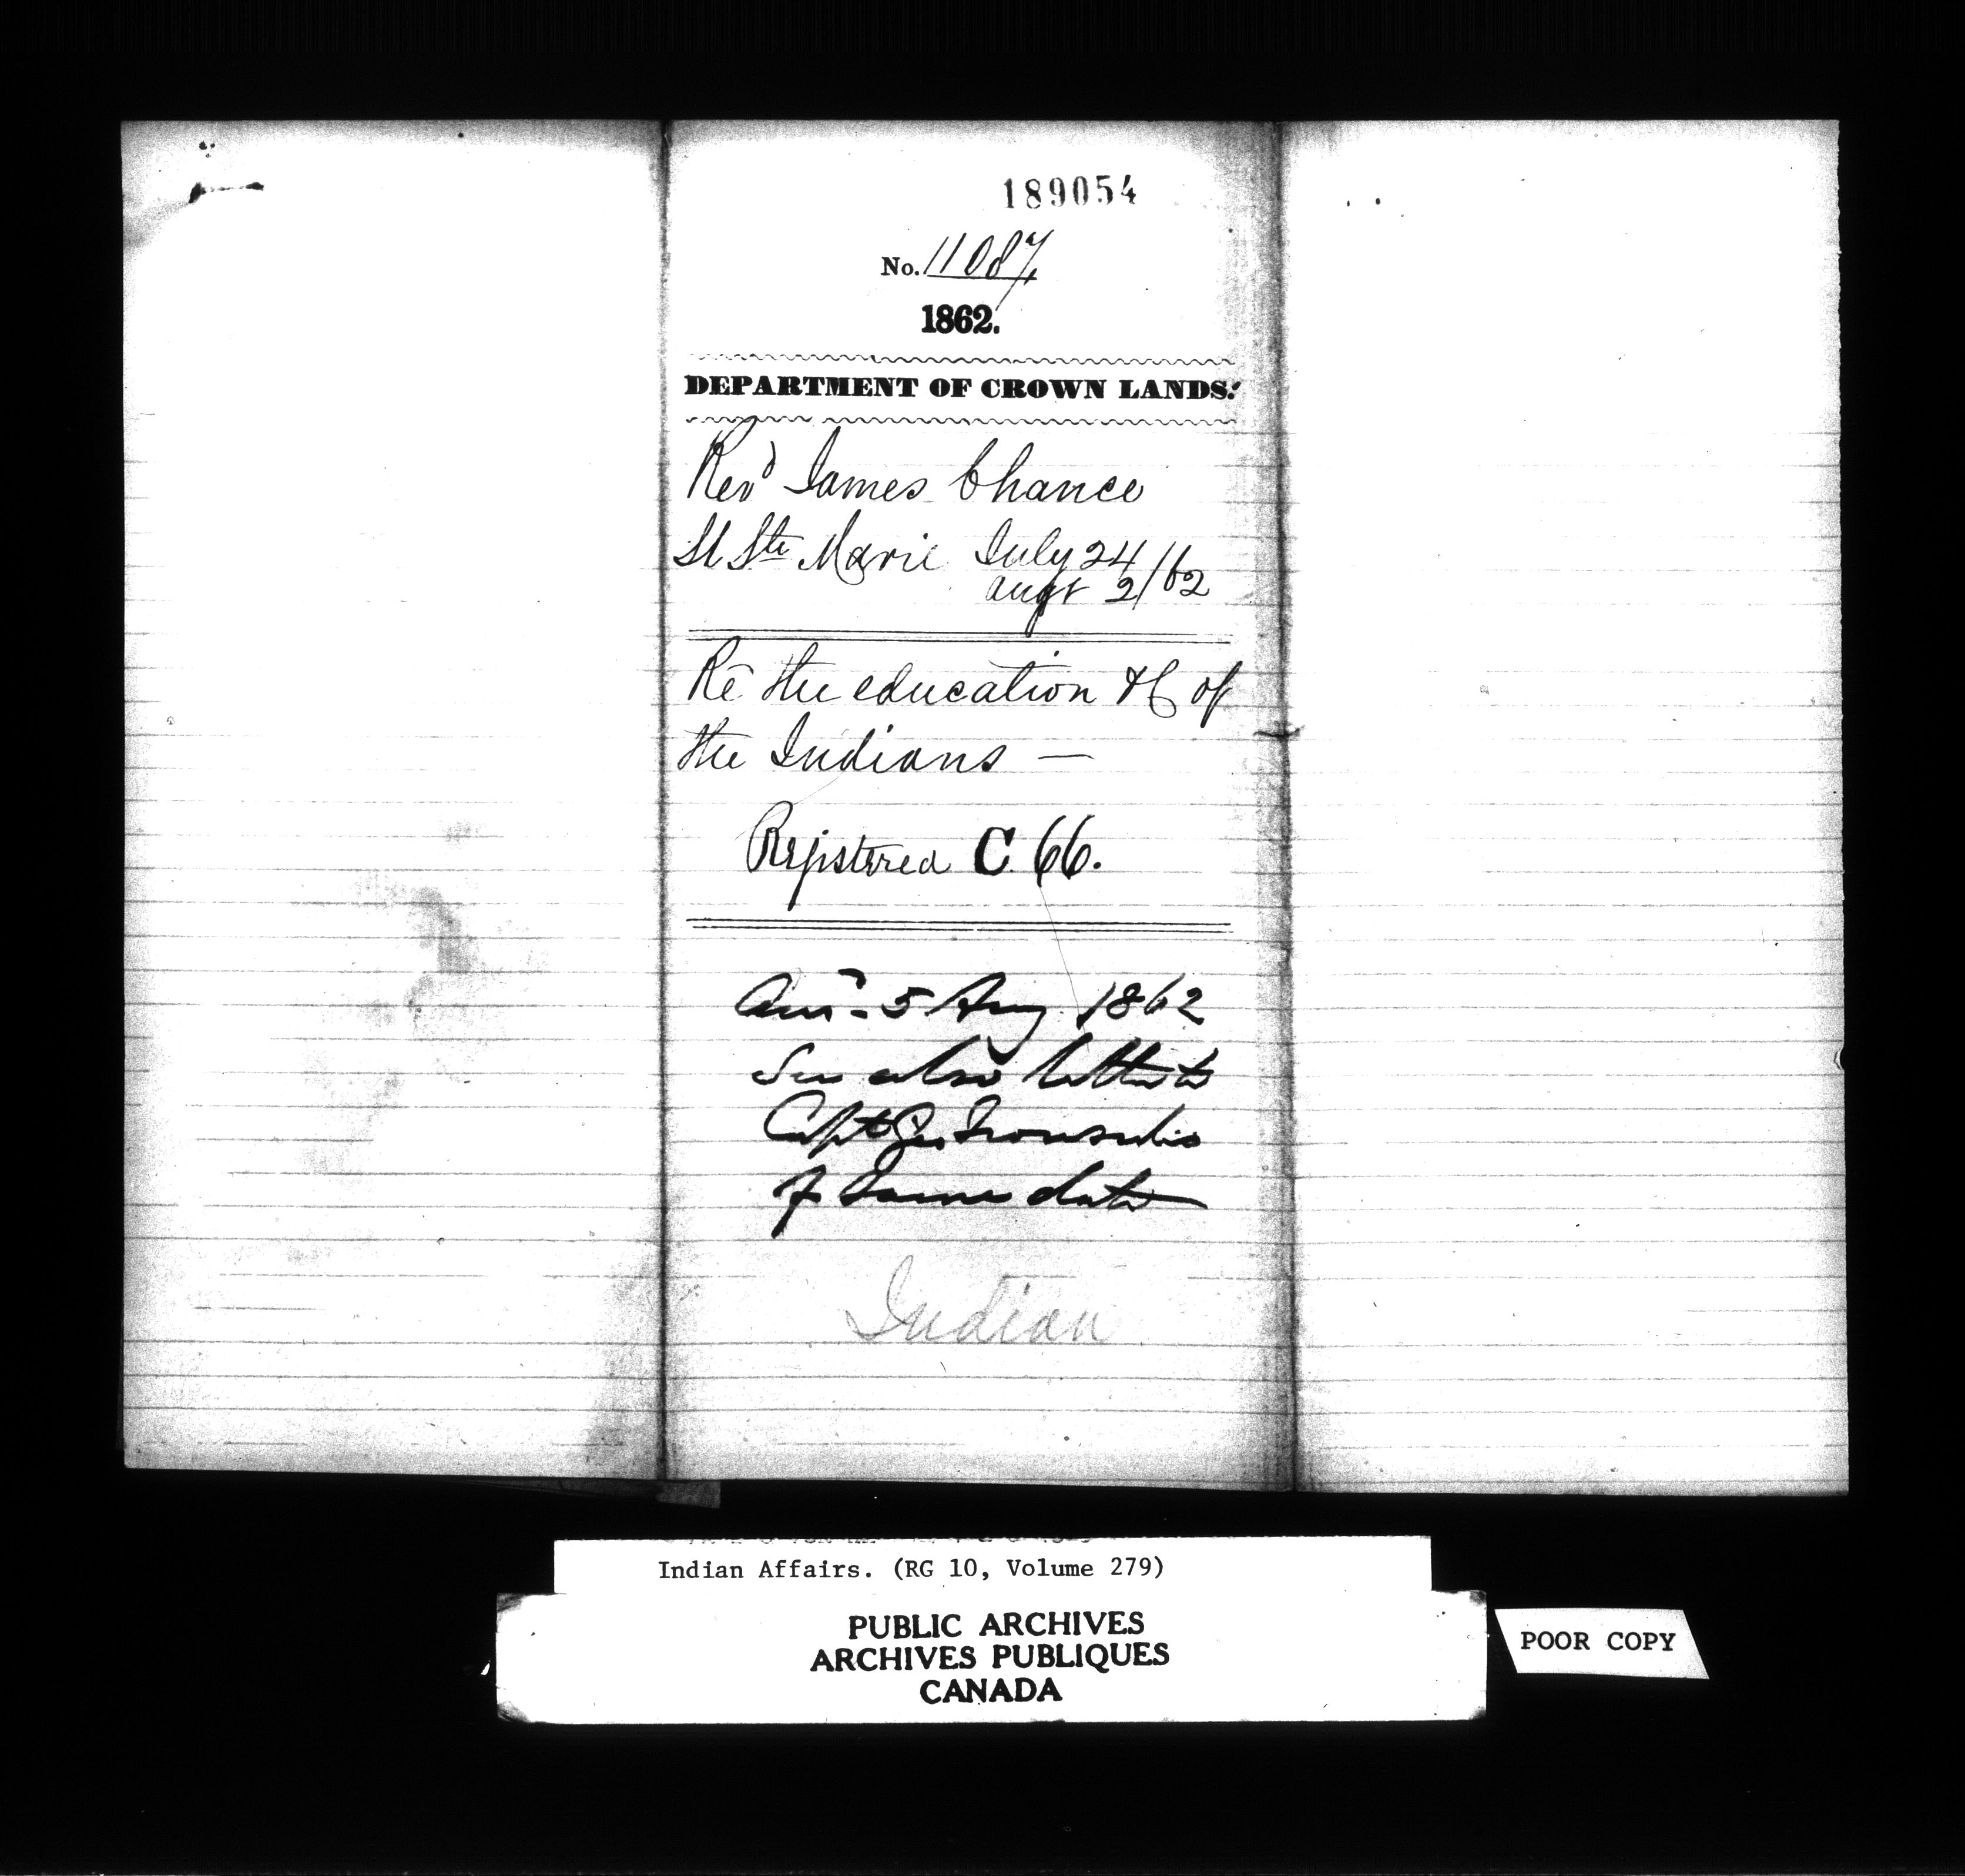 189054
No. 11087
1862.
DEPARTMENT OF CROWN LANDS.
Revd James Chance
St Ste Marie July 24
Augt 2/62
Re the education &C of
the Indians —
Registered C 66.
Ansd. 5 Aug. 1862
See also letter to
Capt Ironside
of same date
Indian
Indian Affairs. (RG 10, Volume 279)
PUBLIC ARCHIVES
ARCHIVES PUBLIQUES
CANADA
POOR COPY